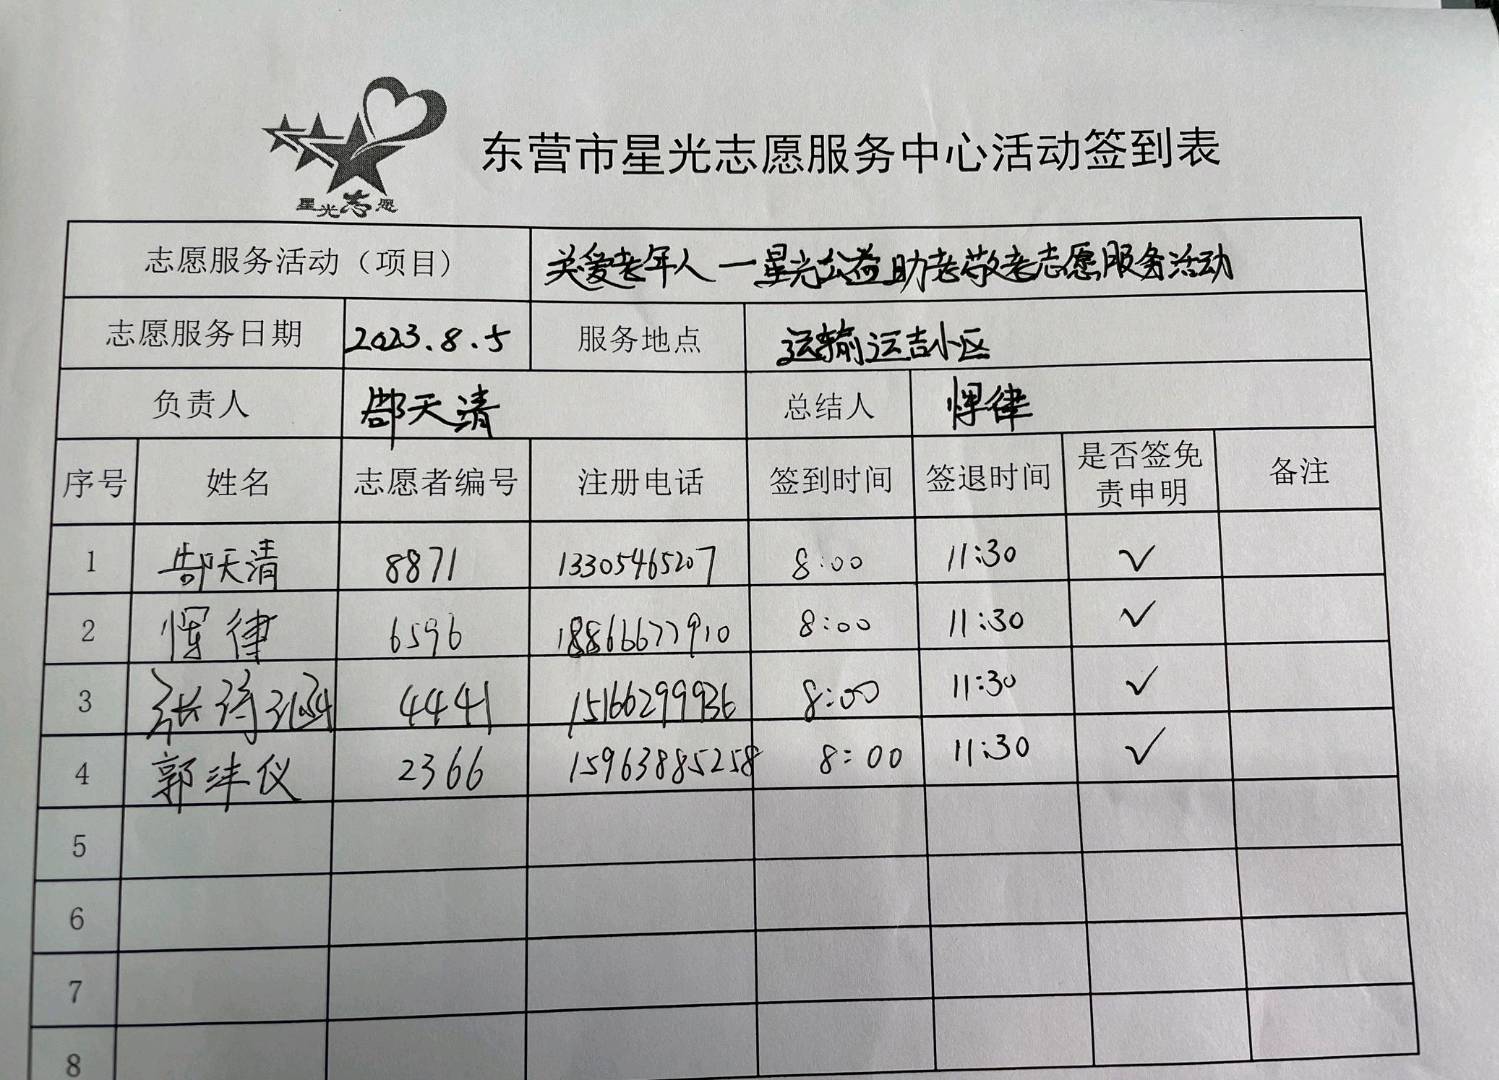 星光志愿
东营市星光志愿服务中心活动签到表
志愿服务活动（项目） 关爱老年人一星光公益助老敬老志愿服务活动
志愿服务日期 2023.8.5 服务地点 运输运吉小区
负责人 郜天清 总结人 恽律
序号 姓名 志愿者编号 注册电话 签到时间 签退时间 是否签免责申明 备注
1 郜天清 8871 13305465207 8:00 11:30 ✓
2 恽律 6596 18866677910 8:00 11:30 ✓
3 张 4441 15166299936 8:00 11:30 ✓
4 郭沣仪 2366 15963885258 8:00 11:30 ✓
5
6
7
8